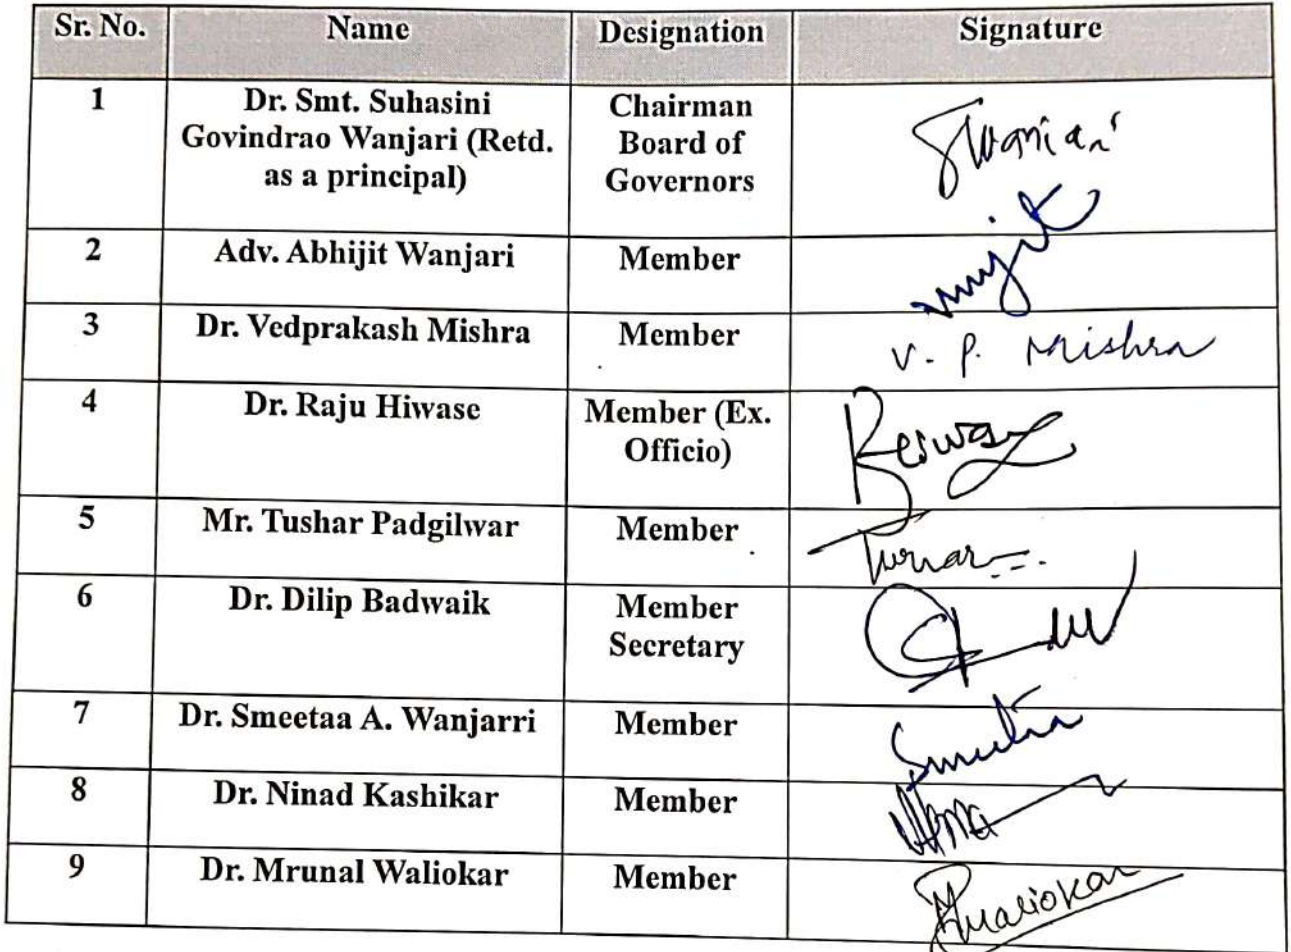 Sr. No. Name Designation Signature
1 Dr. Smt. Suhasini Chairman
Govindrao Wanjari (Retd. Board of
as a principal) Governors
2 Adv. Abhijit Wanjari Member
3 Dr. Vedprakash Mishra Member V. P. Mishra
4 Dr. Raju Hiwase Member (Ex.
Officio)
5 Mr. Tushar Padgilwar Member
6 Dr. Dilip Badwaik Member
Secretary
7 Dr. Smeetaa A. Wanjarri Member
8 Dr. Ninad Kashikar Member
9 Dr. Mrunal Waliokar Member